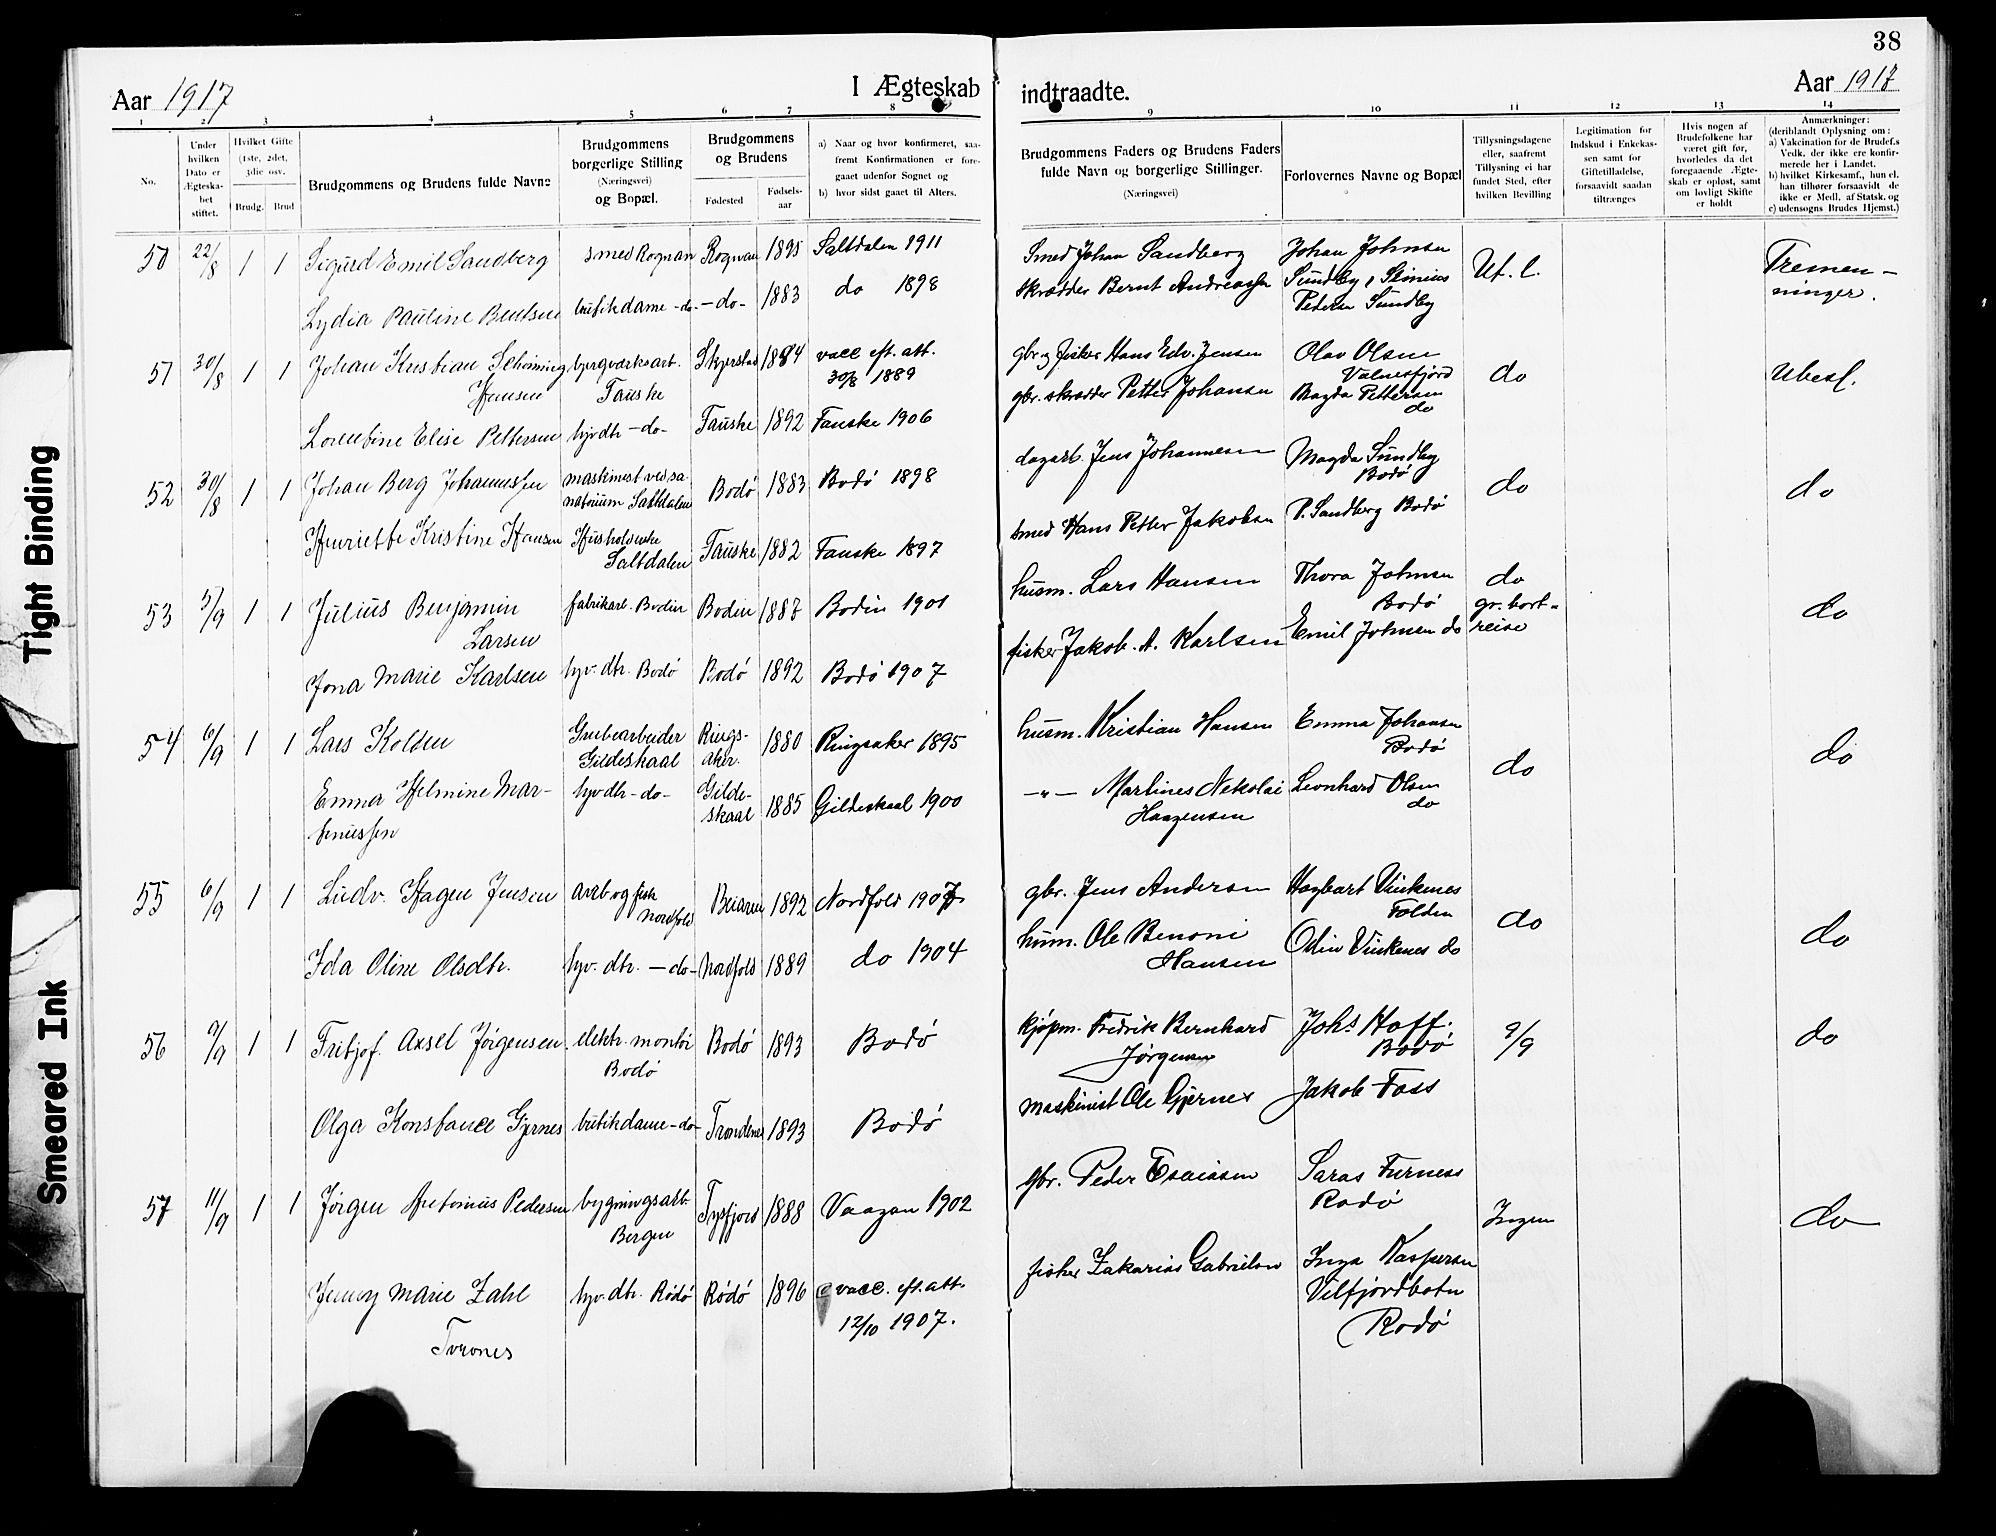 38
Aar 1917
I Ægteskab
indtraadte.
Aar 1917
1 2 3 4 5 6 7 8 9 10 11 12 13 14
No.
Under hvilken Dato er Ægteska- bet stiftet.
Hvilket Gifte (1ste, 2det, 3die osv.
Brudg. Brud
Brudgommens og Brudens fulde Navne
Brudgommens borgerlige Stilling (Næringsvei) og Bopæl.
Brudgommens og Brudens
Fødested
Fødsels- aar
a) Naar og hvor konfirmeret, saa- fremt Konfirmationen er fore- gaaet udenfor Sognet og
b) hvor sidst gaaet til Alters.
Brudgommens Faders og Brudens Faders fulde Navn og borgerlige Stillinger. (Næringsvei)
Forlovernes Navne og Bopæl
Tillysningsdagene eller, saafremt Tillysning ei har fundet Sted, efter hvilken Bevilling
Legitimation for Indskud i Enkekas- sen samt for Giftetilladelse, forsaavidt saadan tiltrænges
Hvis nogen af Brudefolkene har været gift før, hvorledes da det foregaaende Ægte- skab er opløst, samt om lovligt Skifte er holdt
Anmærkninger: (deriblandt Oplysning om: a) Vakcination for de Brudef.s Vedk. der ikke ere konfir- merede her i Landet. b) hvilket Kirkesamf., hun el. han tilhører forsaavidt de ikke er Medl. af Statsk. og c) udensogns Brudes Hjemst.)
50 22/8 1 1 Sigurd Emil Sandberg smed Rognan Rognan 1895 Saltdalen 1911 Smed Johan Sandberg Johan Johnsen Sundby, Uf. l. Tremen-
ninger.
Lydia Pauline Bentsen butikdame -do- -do- 1883 do 1898 skrædder Bernt Andreassen Pedersen Sundby
51 30/8 1 1 Johan Kristian Schöning bjergværksarb. Skjerstad 1884 vacc eft. att. gbr. og fisker Hans Edv. Jensen Olav Olsen do Ubesl.
Jensen Fauske 30/8 1889 Valnesfjord
Lorentine Elise Pettersen hjv dtr -do- Fauske 1892 Fauske 1906 gbr. skrædder Petter Johansen Magda Pettersen do
52 30/8 1 1 Johan Berg Johannessen maskinest ved sa- Bodö 1883 Bodö 1898 dagarb. Jens Johannesen Magda Sundby do do
natorium Saltdalen Bodö
Henriette Kristine Hansen Husholderske Fauske 1882 Fauske 1897 smed Hans Petter Jakobsen P. Sandberg Bodö
Saltdalen
53 5/9 1 1 Julius Benjamin fabrikarb. Bodin Bodin 1887 Bodin 1901 husm. Lars Hansen Thora Johnsen do do
Larsen Bodö gr. bort-
Jona Marie Karlsen hjv. dtr. Bodö Bodö 1892 Bodö 1907 fisker Jakob. A. Karlsen Emil Johnsen do reise
54 6/9 1 1 Lars Kolden Grubearbeider Rings- 1880 Ringsaker 1895 husm. Kristian Hansen Emma Johansen do do
Gildeskaal aker. Bodö
Emma Helmine Mar- hjv dtr -do- Gilde- 1885 Gildeskaal 1900 -"- Martines Nekolai Leonhard Olsen
skaal Haagensen do
55 6/9 1 1 Ludv. Hagen Jensen arb og fisk Beiaren 1892 Nordfold 1907 gbr. Jens Andersen Hagbart Vinkenes do do
Nordfold Folden
Ida Oline Olsdtr. hjv. dtr. -do- Nordfold 1889 do 1904 husm. Ole Benoni Odin Vinkenes do
Hansen
56 9/9 1 1 Fritjof Axsel Jørgensen. elektr. montör Bodö 1893 Bodö kjøpm. Fredrik Bernhard Johs Hoff. 9/9 do
Bodö Jørgensen Bodö
Olga Konstance Gjernes butikdame -do- Trondenes 1893 Bodö maskinist Ole Gjernes Jakob Foss
57 11/9 1 1 Jørgen Antonius Pedersen bygningsarb. Tysfjord 1888 Vaagan 1902 gbr. Peder Esaiassen Saras Furness Ingen do
Bergen Rodö
Jenny Marie Zahl hjv. dtr. Rödö Rödö 1896 vacc. eft. att. fisker Zakarias Gabrielsen Inga Kaspersen
Tvrones 12/10 1907. Vilfjordbotn
Rodö
Tight Binding
Smeared Ink